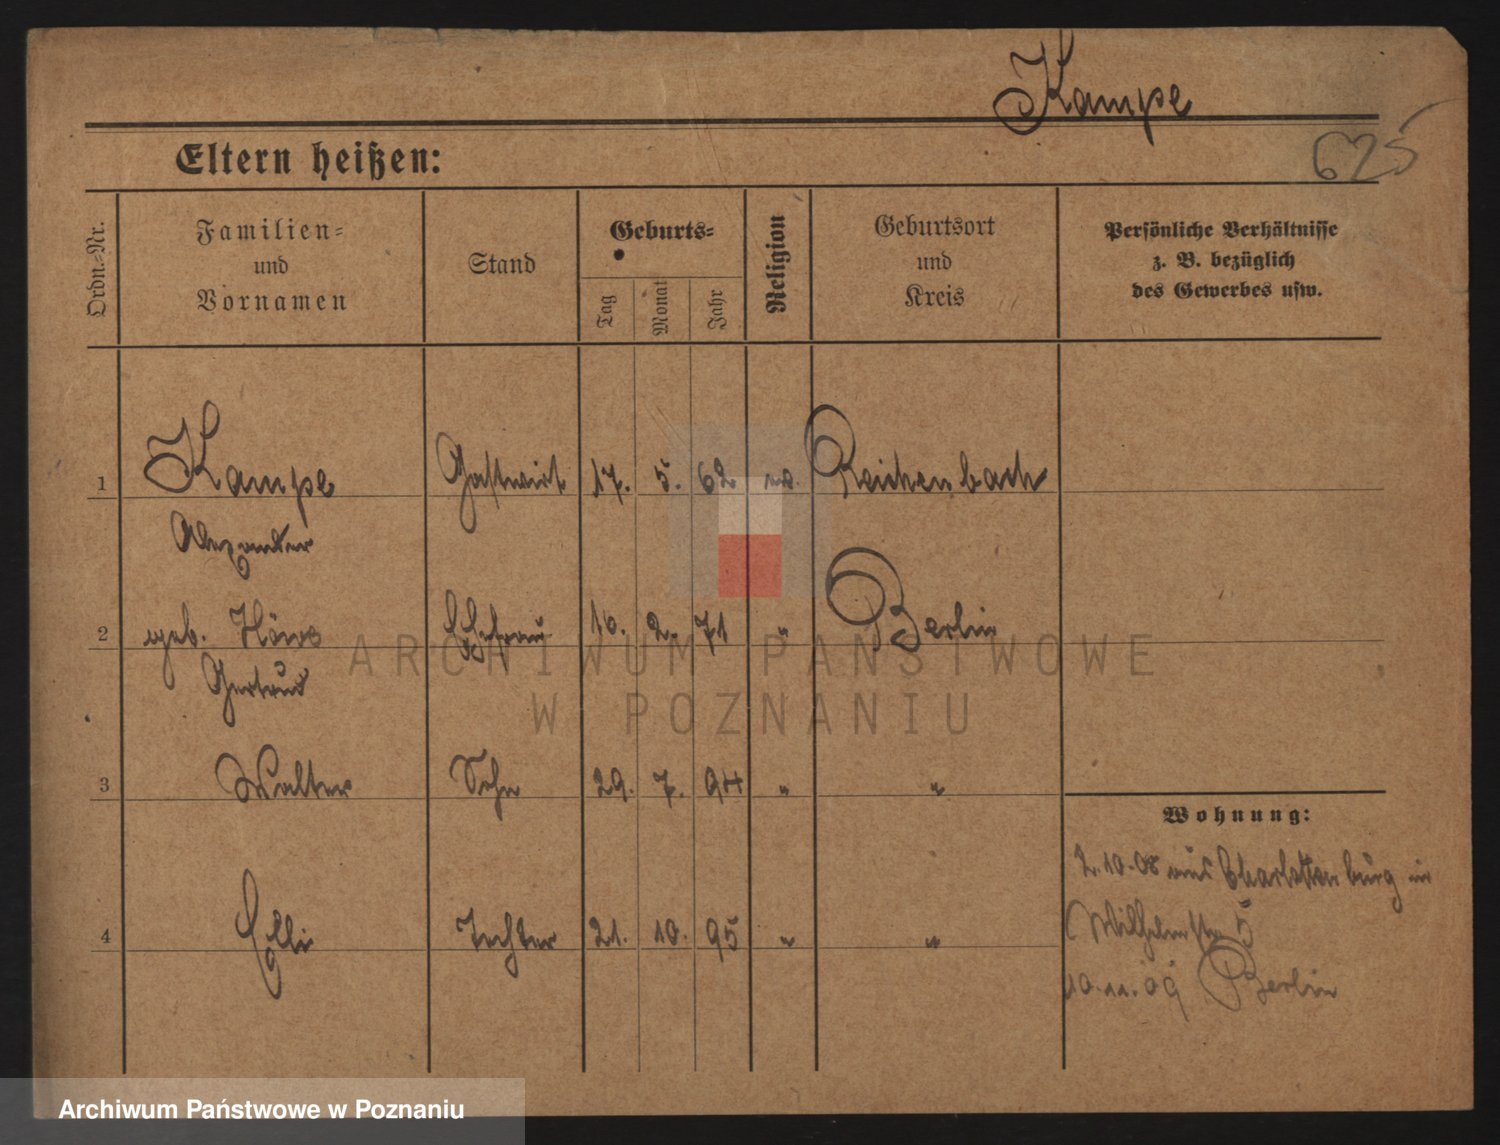 Kampe
625
Eltern heißen:
Ordn.-Nr.
Familien-
und
Vornamen
Stand
Geburts-
Tag
Monat
Jahr
Religion
Geburtsort
und
Kreis
Persönliche Verhältnisse
z. B. bezüglich
des Gewerbes usw.
1 Kampe Gastwirt 17. 5. 62 Reichenbach
Alexander
2 geb. Ehefrau 10. 2. 71 " Berlin
Gertrud
3 Walter Sohn 29. 7. 94 " "
4 Elli Tochter 21. 10. 95 " "
Wohnung:
2.10.08 aus Charlottenburg in
Wilhelmstr 5
10.11.09 Berlin
ARCHIWUM PAŃSTWOWE
W POZNANIU
Archiwum Państwowe w Poznaniu